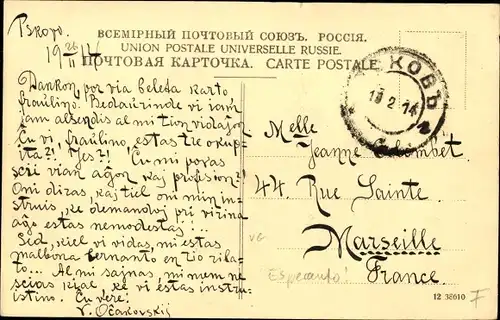 Pskovo.
19 26/II 14
ВСЕМІРНЫЙ ПОЧТОВЫЙ СОЮЗЪ. РОССІЯ.
UNION POSTALE UNIVERSELLE RUSSIE.
ПОЧТОВАЯ КАРТОЧКА. CARTE POSTALE
КОВЪ
13 2 14
2
Dankon, por via beleta karto
fraŭlino. Bedaŭrinde vi iam
jam alsendis al mi tiun vidaĵon
Ĉu vi, fraŭlino, estas tre okup
ita?! Jes?! Ĉu mi povas
scii vian aĝon kaj profesion?!
Oni diras, kaj tiel oni min in
struis, ke demandoj pri virina
aĝo estas nemodestaj!...
Sed, kiel vi vidas, mi estas
malbona lernanto en tio rila-
to... Al mi ŝajnas, mi mem ne
scias kial, ke vi estas instru
istino. Ĉu vere?
V. Oĉakovskij
Melle
Jeanne Colombet
44. Rue Sainte
Marseille
France.
Esperanto!
12 38610